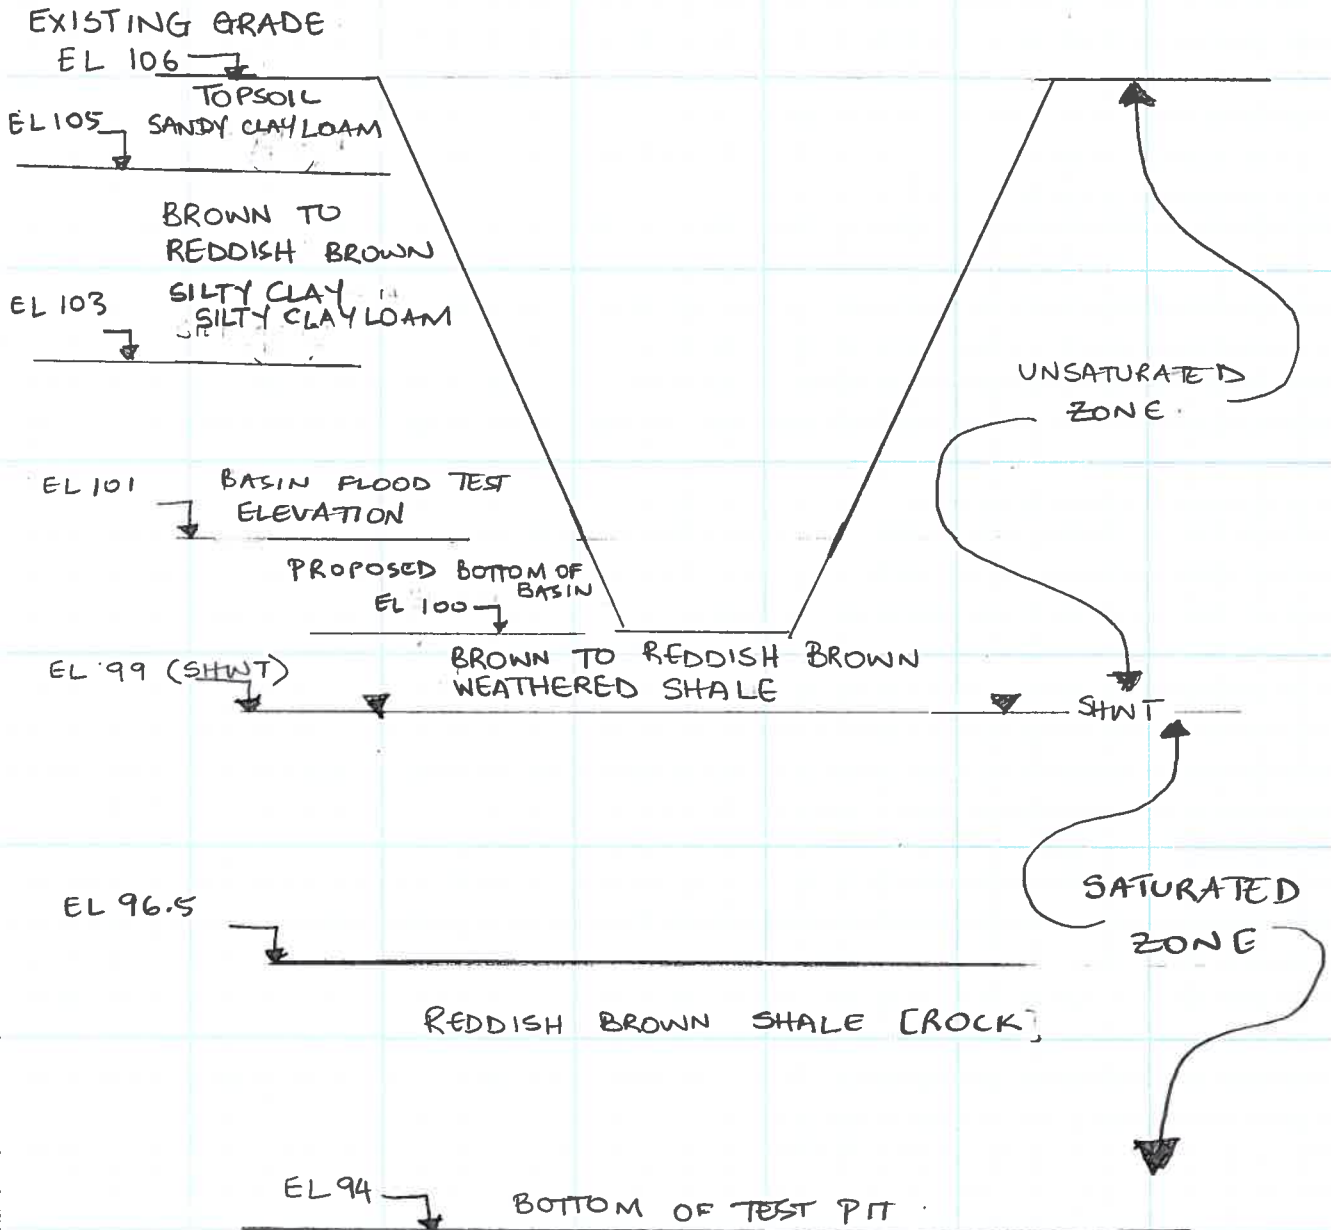 EXISTING GRADE
EL 106
TOPSOIL
EL 105
SANDY CLAY LOAM
BROWN TO
REDDISH BROWN
SILTY CLAY
EL 103
SILTY CLAY LOAM
UNSATURATED
ZONE.
EL 101
BASIN FLOOD TEST
ELEVATION
PROPOSED BOTTOM OF
BASIN
EL 100
BROWN TO REDDISH BROWN
EL 99 (SHWT)
WEATHERED SHALE
SHWT
SATURATED
ZONE
EL 96.5
REDDISH BROWN SHALE [ROCK]
EL 94
BOTTOM OF TEST PIT.